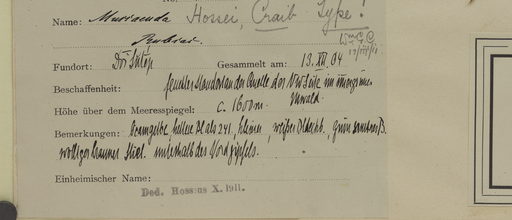 Name: Mussaenda Hossei, Craib. Type!
Rubiac.
Fundort: Doi Sutäp Gesammelt am: 13. XII. 04
Beschaffenheit: feuchter Standort an der Quelle der NW Seite im immergrünen
Urwald.
Höhe über dem Meeresspiegel: c. 1600 m.
Bemerkungen: hellere als 241, kleiner, weißer
wolliger brauner Stiel. unterhalb des Nordgipfels.
Einheimischer Name:
Ded. Hosseus X. 1911.